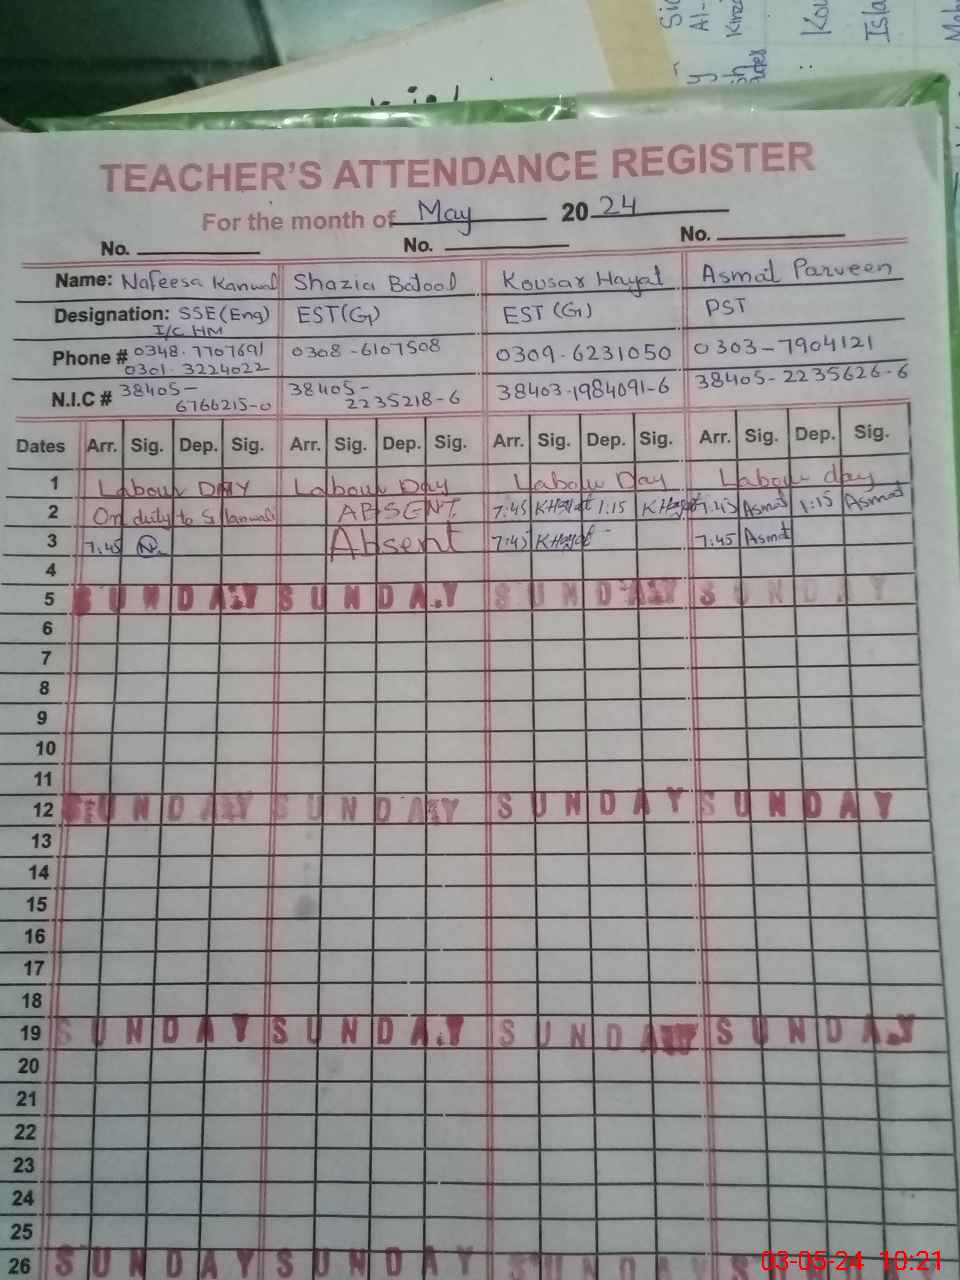 TEACHER'S ATTENDANCE REGISTER
For the month of May 2024
No. No. No.
Name: Nafeesa Kanwal Shazia Batool Kousar Hayat Asmat Parveen
Designation: SSE (Eng) EST (G) EST (G) PST
I/C HM
Phone # 0348-7707691 0308-6107508 0309-6231050 0303-7904121
0301-3224022
N.I.C # 38405- 38405- 38403-1984091-6 38405-2235626-6
6766215-0 2235218-6
Dates Arr. Sig. Dep. Sig. Arr. Sig. Dep. Sig. Arr. Sig. Dep. Sig. Arr. Sig. Dep. Sig.
1 Labour DAY Labour Day Labour Day Labour day
2 On duty to ABSENT 7:45 KHayat 1:15 KHayat 7:45 Asmat 1:15 Asmat
3 7:45 Absent 7:45 KHayat 7:45 Asmat
4
5 SUNDAY SUNDAY SUNDAY SUNDAY
6
7
8
9
10
11
12 SUNDAY SUNDAY SUNDAY SUNDAY
13
14
15
16
17
18
19 SUNDAY SUNDAY SUNDAY SUNDAY
20
21
22
23
24
25
26 SUNDAY SUNDAY SUNDAY S
03-05-24 10:21